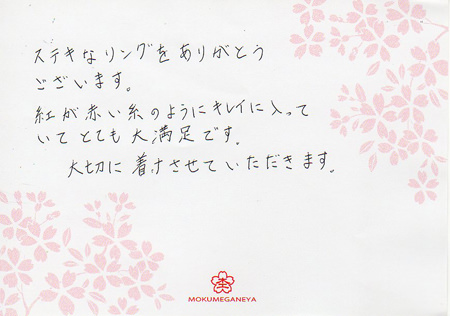 ステキなリングをありがとう
ございます。
紅が赤い糸のようにキレイに入って
いて とても 大満足です。
大切に 着けさせていただきます。
MOKUMEGANEYA